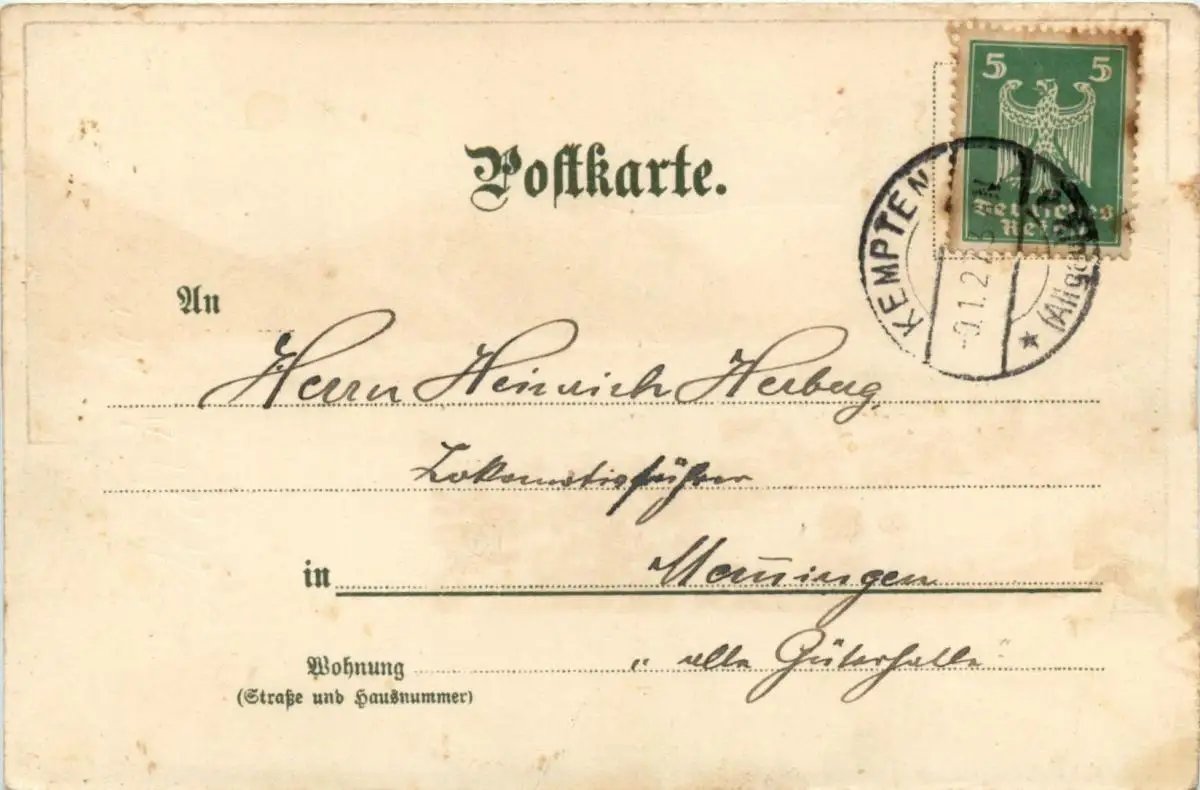 5 5
Deutsches
Reich
KEMPTEN
(Allgäu)
Postkarte.
An
Herrn Heinrich Herberg,
Lokomotivführer
in Memmingen
Wohnung „alte Güterhalle"
(Straße und Hausnummer)